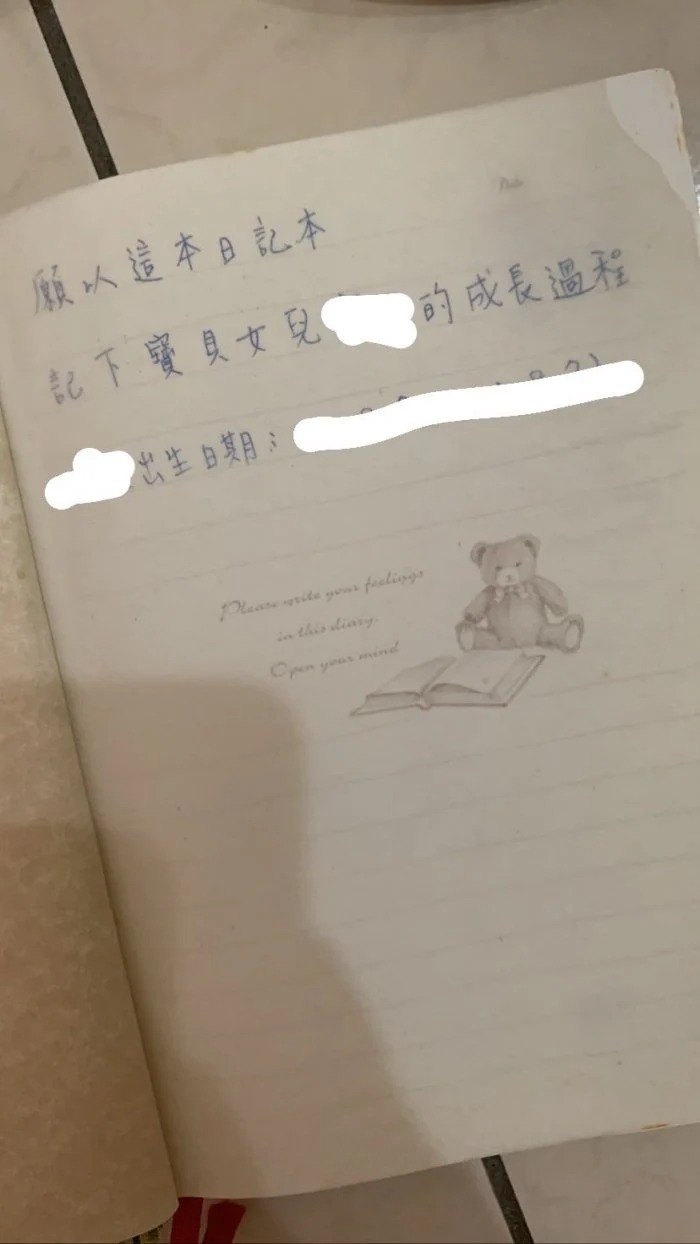 Date
願以這本日記本
記下寶貝女兒的成長過程
出生日期：
Please write your feelings
in this diary.
Open your mind